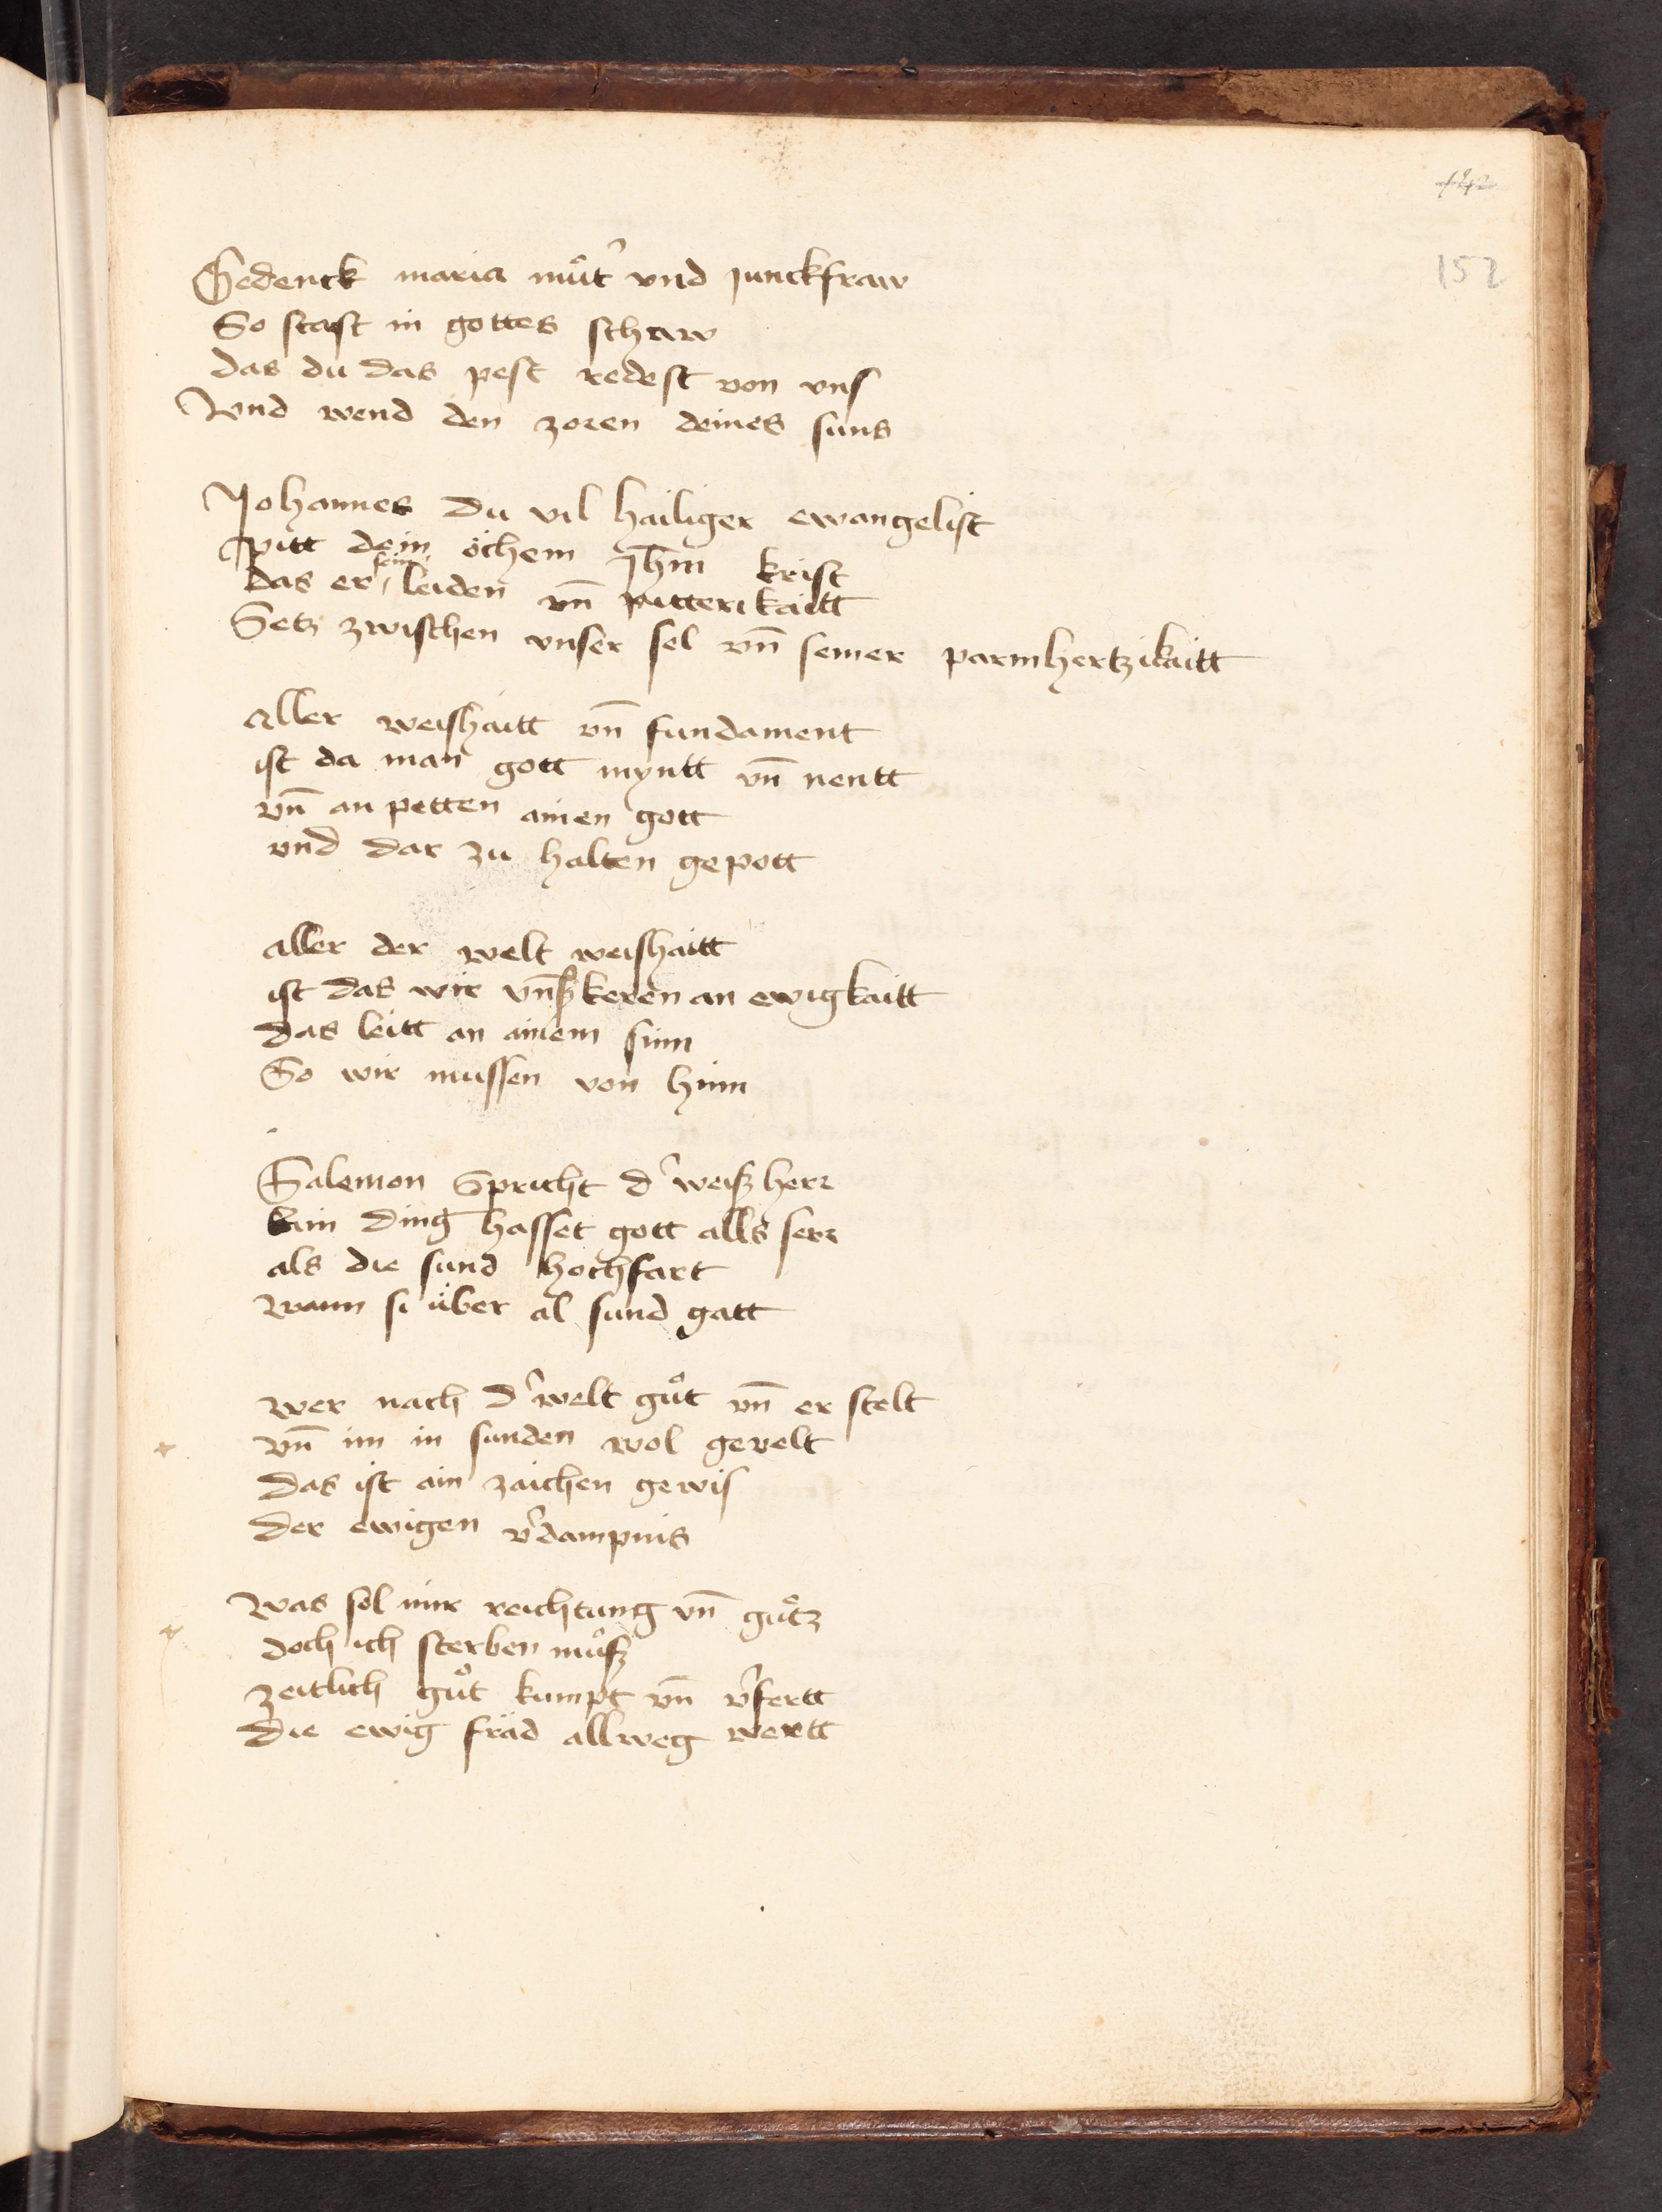 142
152
Gedenck maria mu᷑t᷑ vnd junckfraw
So stast in gottes schaw
das du das pest redest von vns
Vnd wend den zoren deines suns
Johannes du vil hailiger ewangelist
pitt dein öchem jhm̄ krist
das er sein leiden vn̄ pitterikaitt
Setz zwischen vnser sel vn̄ seiner parmhertzikaitt
Aller weishaitt vn̄ fundament
ist da man gott myntt vn̄ nentt
vn̄ an petten ainen gott
vnd dar zu halten gepott
aller der welt weishaitt
ist das wir vnß keren an ewigkaitt
das leitt an ainem sinn
So wir mussen von hinn
Salemon Spricht d᷑ weiß herr
kain ding hasset gott alls serr
als die sund hochfart
wann si über al sund gatt
wer nach d᷑ welt gůt vn̄ er stelt
vn̄ im in sunden wol gevelt
das ist ain zaichen gewis
der ewigen v᷑dampnis
Was sol mir reichtung vn̄ gůtz
doch ich sterben můß
zeitlich gůt kumpt vn̄ v᷑fertt
die ewig fräd allweg wertt